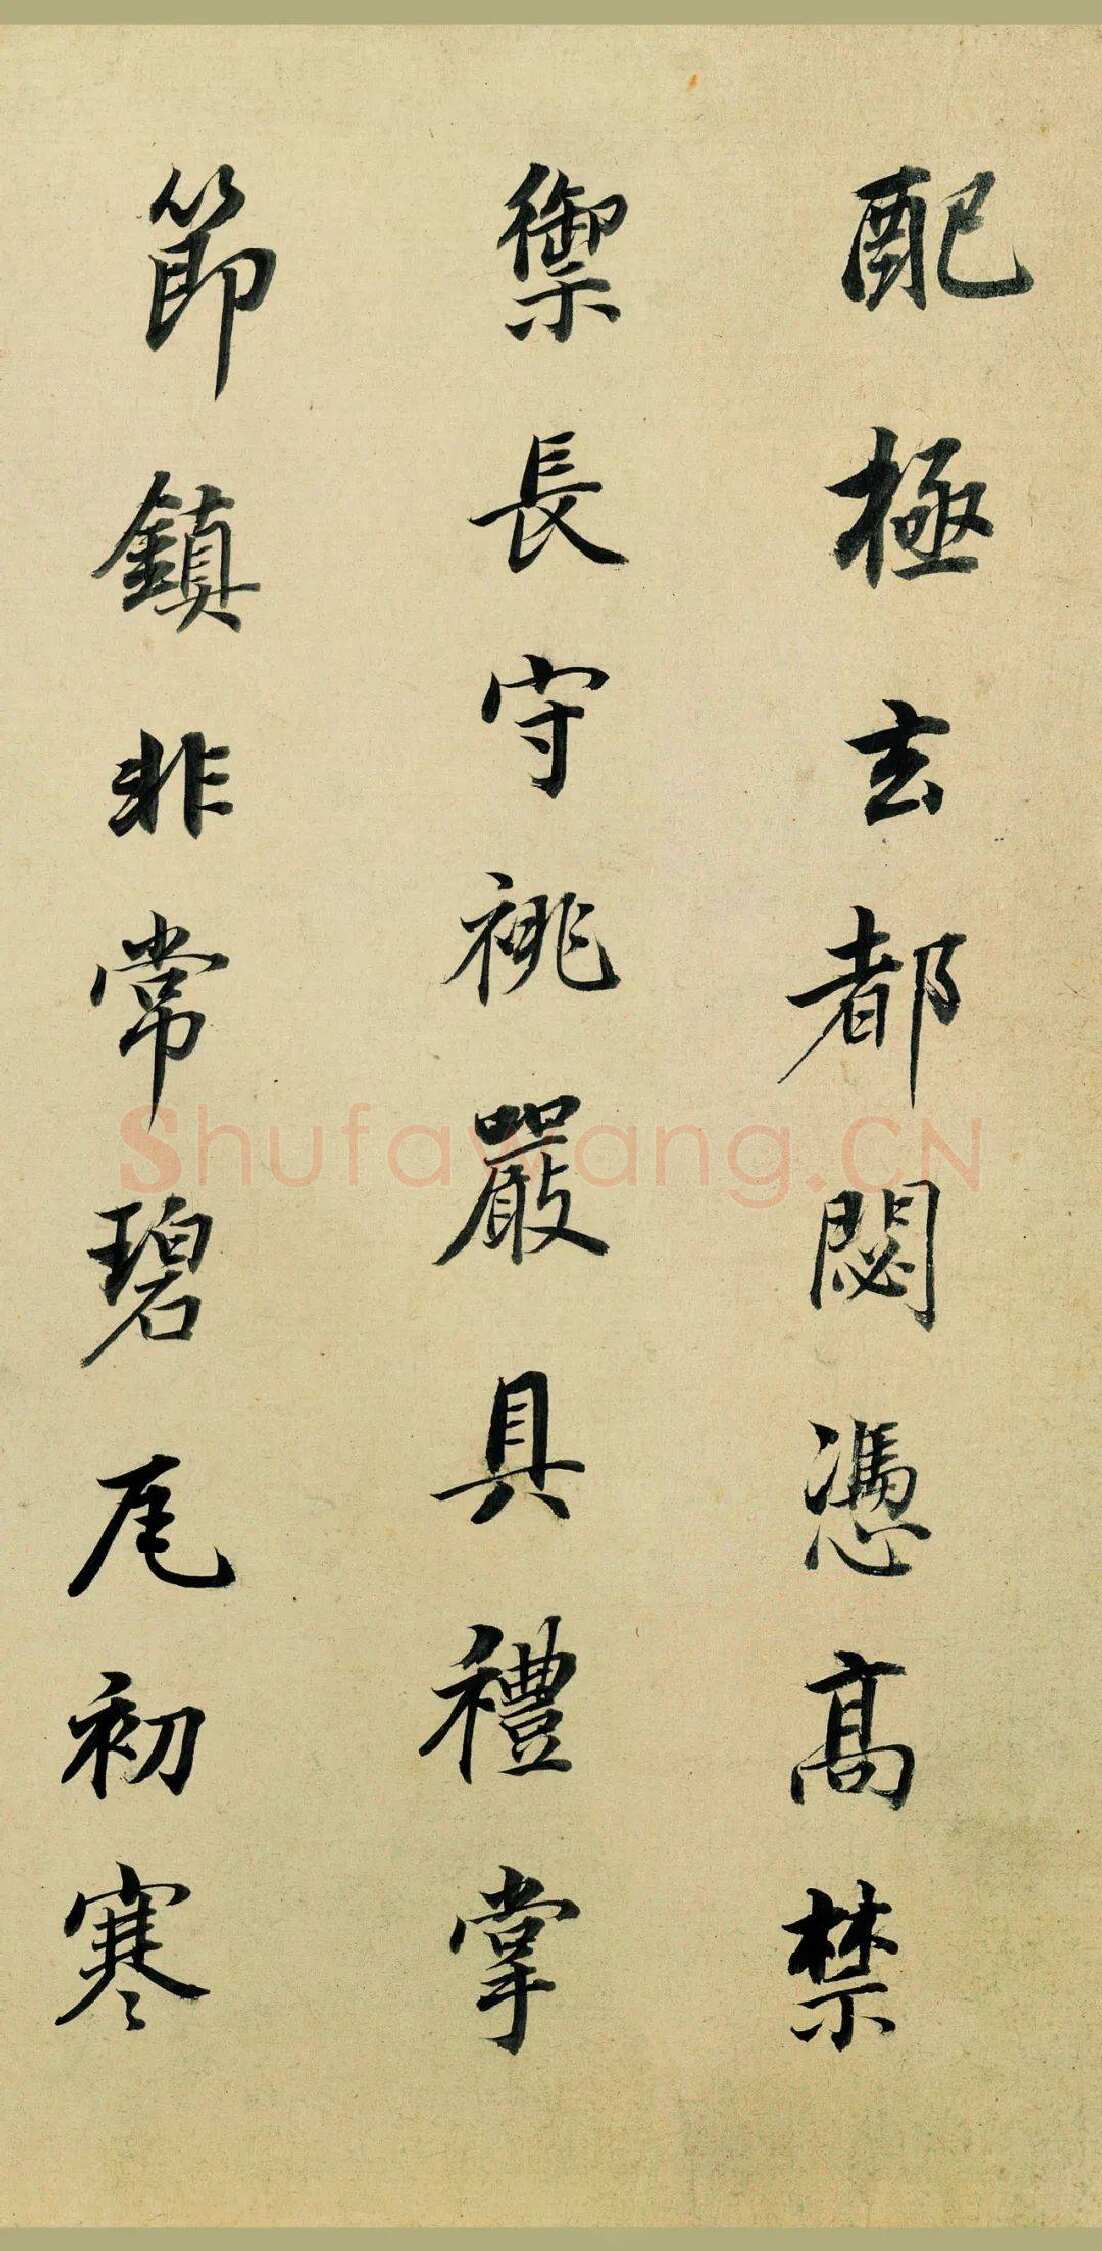 配極玄都閟憑高禁
禦長守祧嚴具禮掌
節鎮非常碧尾初寒
Shufawang.CN